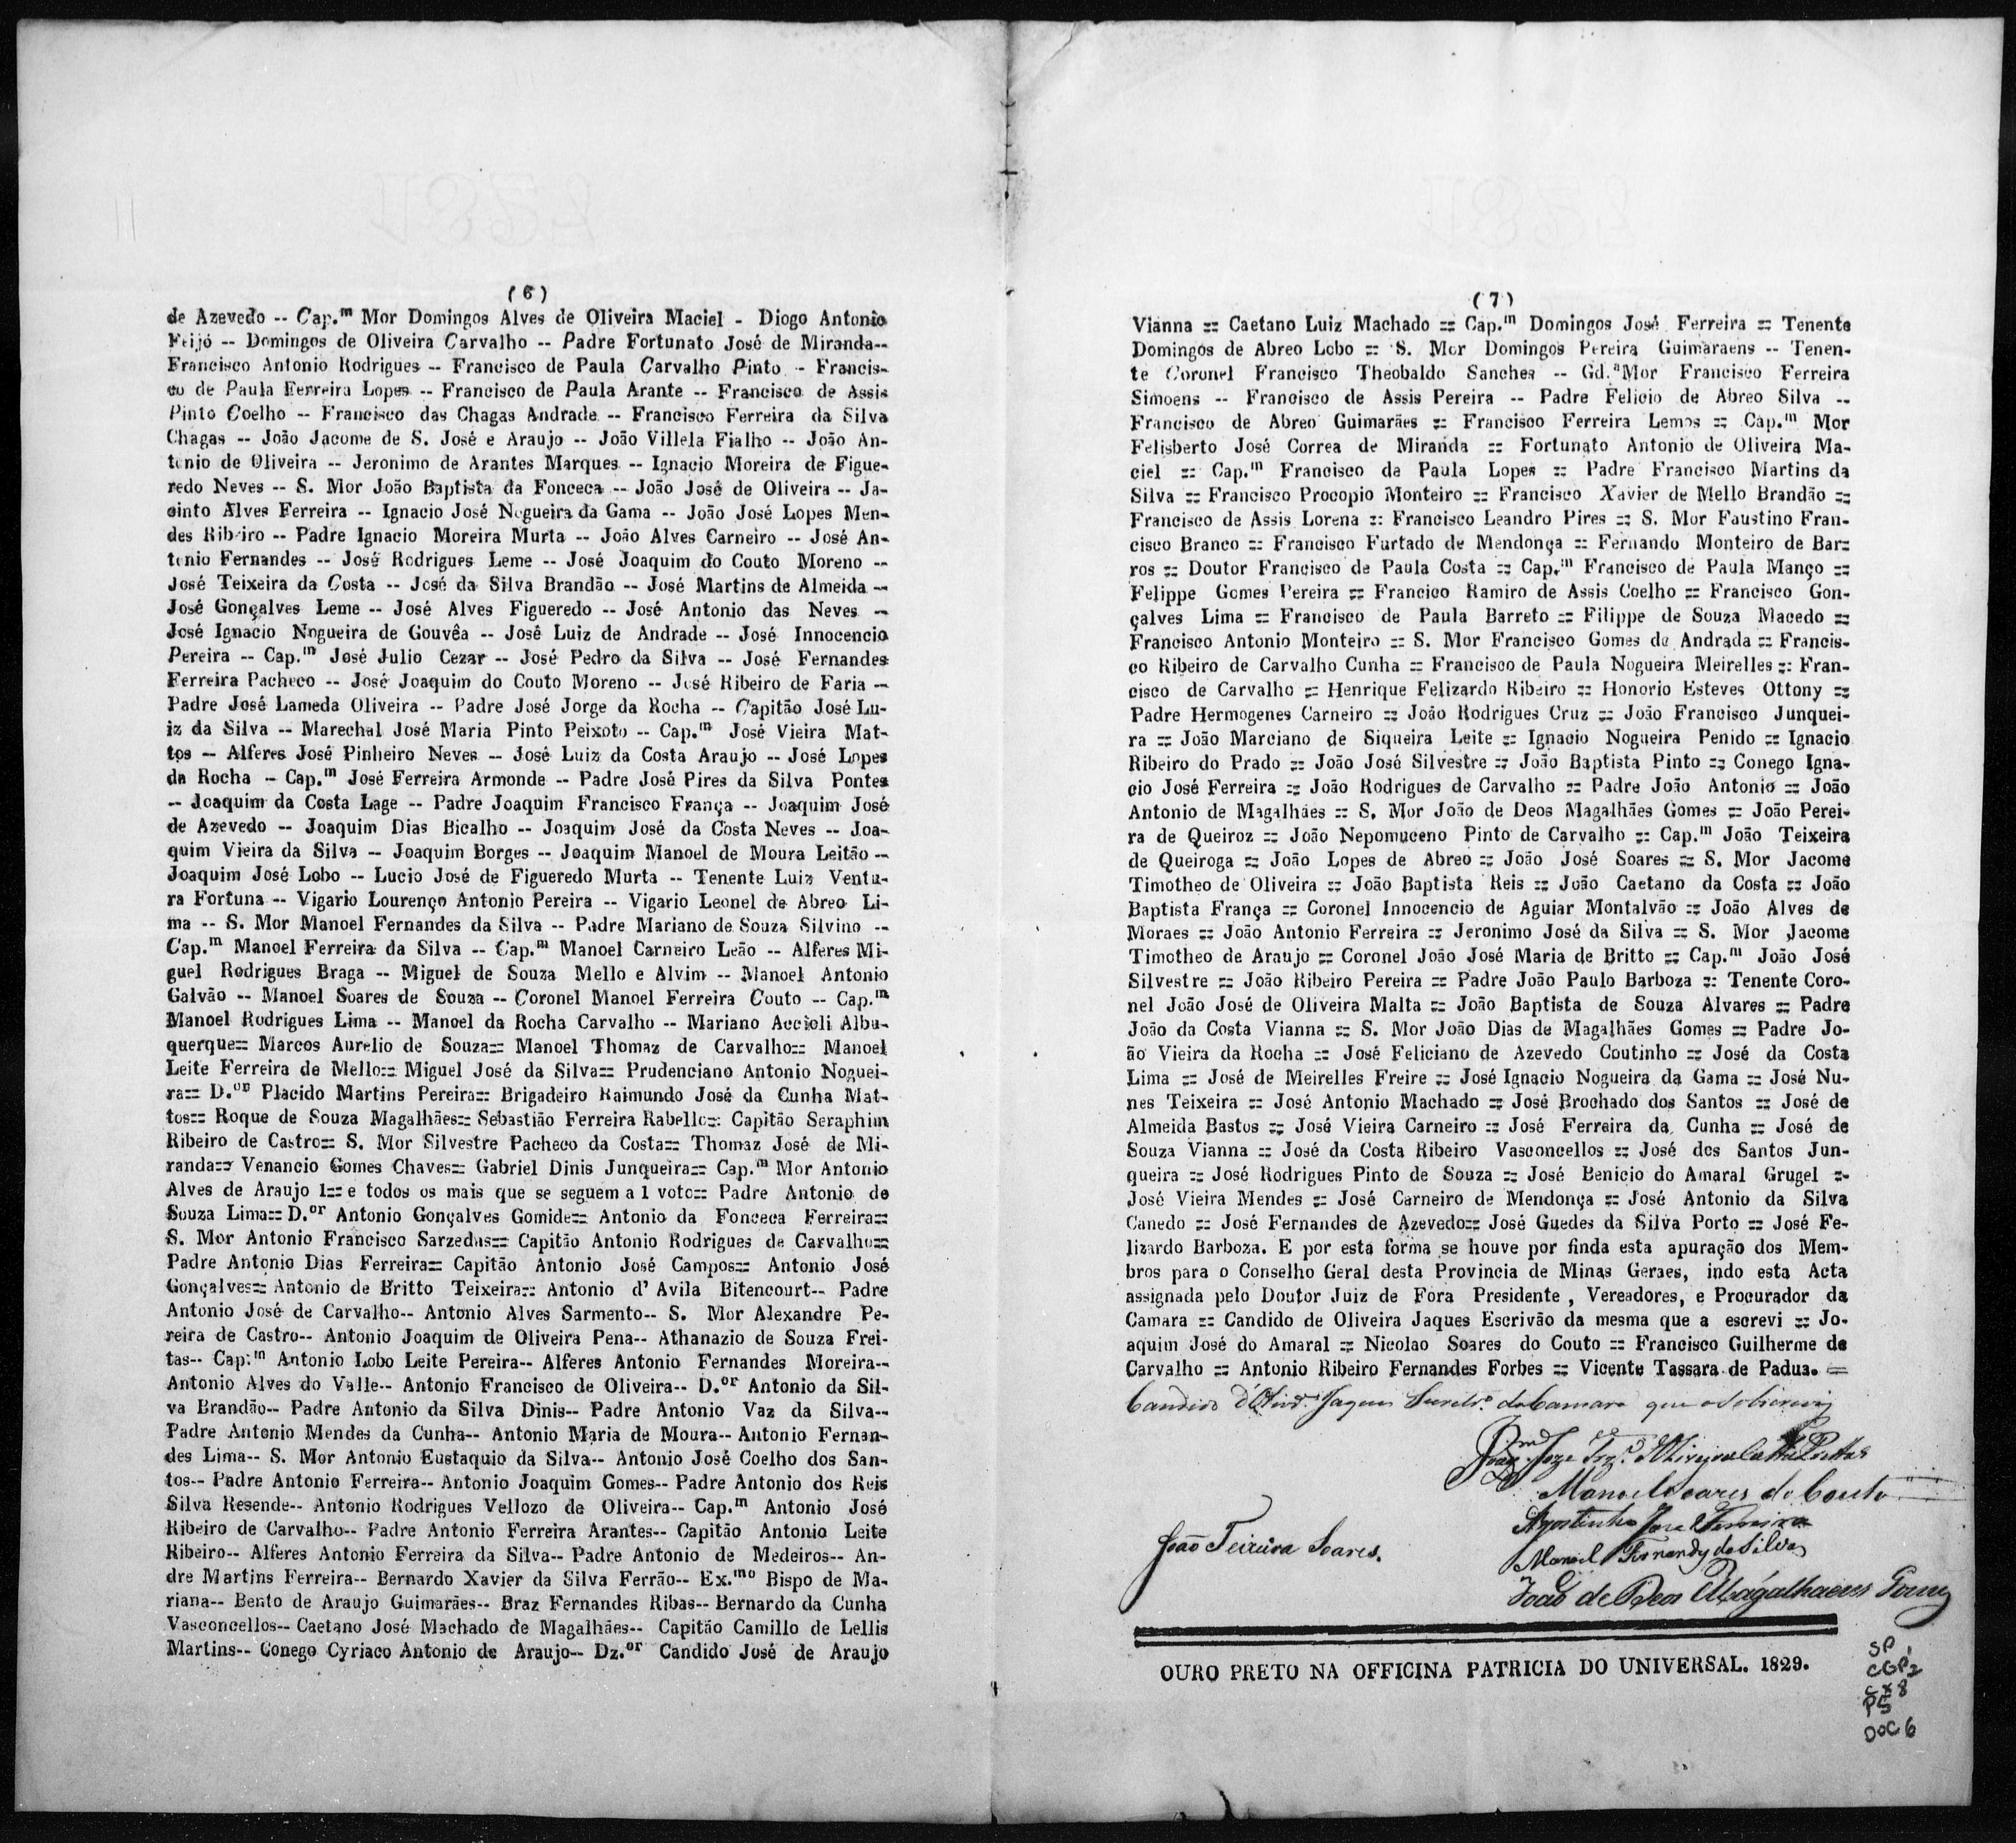 ( 6 )
de Azevedo -- Cap.m Mor Domingos Alves de Oliveira Maciel - Diogo Antonio
Feijó -- Domingos de Oliveira Carvalho -- Padre Fortunato José de Miranda--
Francisco Antonio Rodrigues -- Francisco de Paula Carvalho Pinto - Francis-
co de Paula Ferreira Lopes -- Francisco de Paula Arante -- Francisco de Assis
Pinto Coelho -- Francisco das Chagas Andrade -- Francisco Ferreira da Silva
Chagas -- João Jacome de S. José e Araujo -- João Villela Fialho -- João An-
tonio de Oliveira -- Jeronimo de Arantes Marques -- Ignacio Moreira de Figue-
redo Neves -- S. Mor João Baptista da Fonceca -- João José de Oliveira -- Ja-
cinto Alves Ferreira -- Ignacio José Nogueira da Gama -- João José Lopes Men-
des Ribeiro -- Padre Ignacio Moreira Murta -- João Alves Carneiro -- José An-
tonio Fernandes -- José Rodrigues Leme -- José Joaquim do Couto Moreno --
José Teixeira da Costa -- José da Silva Brandão -- José Martins de Almeida --
José Gonçalves Leme -- José Alves Figueredo -- José Antonio das Neves --
José Ignacio Nogueira de Gouvêa -- José Luiz de Andrade -- José Innocencio
Pereira -- Cap.m José Julio Cezar -- José Pedro da Silva -- José Fernandes
Ferreira Pacheco -- José Joaquim do Couto Moreno -- José Ribeiro de Faria --
Padre José Lameda Oliveira -- Padre José Jorge da Rocha -- Capitão José Lu-
iz da Silva -- Marechal José Maria Pinto Peixoto -- Cap.m José Vieira Mat-
tos -- Alferes José Pinheiro Neves -- José Luiz da Costa Araujo -- José Lopes
da Rocha - Cap.m José Ferreira Armonde -- Padre José Pires da Silva Pontes
-- Joaquim da Costa Lage -- Padre Joaquim Francisco França -- Joaquim José
de Azevedo -- Joaquim Dias Bicalho -- Joaquim José da Costa Neves -- Joa-
quim Vieira da Silva -- Joaquim Borges -- Joaquim Manoel de Moura Leitão --
Joaquim José Lobo -- Lucio José de Figueredo Murta -- Tenente Luiz Ventu-
ra Fortuna -- Vigario Lourenço Antonio Pereira -- Vigario Leonel de Abreo Li-
ma -- S. Mor Manoel Fernandes da Silva -- Padre Mariano de Souza Silvino --
Cap.m Manoel Ferreira da Silva -- Cap.m Manoel Carneiro Leão -- Alferes Mi-
guel Rodrigues Braga -- Miguel de Souza Mello e Alvim -- Manoel Antonio
Galvão -- Manoel Soares de Souza -- Coronel Manoel Ferreira Couto -- Cap.m
Manoel Rodrigues Lima -- Manoel da Rocha Carvalho -- Mariano Accioli Albu-
querque== Marcos Aurelio de Souza== Manoel Thomaz de Carvalho== Manoel
Leite Ferreira de Mello== Miguel José da Silva== Prudenciano Antonio Noguei-
ra== D.or Placido Martins Pereira== Brigadeiro Raimundo José da Cunha Mat-
tos== Roque de Souza Magalhães== Sebastião Ferreira Rabello== Capitão Seraphim
Ribeiro de Castro== S. Mor Silvestre Pacheco da Costa== Thomaz José de Mi-
randa== Venancio Gomes Chaves== Gabriel Dinis Junqueira== Cap.m Mor Antonio
Alves de Araujo 1== e todos os mais que se seguem a 1 voto== Padre Antonio de
Souza Lima== D.or Antonio Gonçalves Gomide== Antonio da Fonceca Ferreira==
S. Mor Antonio Francisco Sarzedas== Capitão Antonio Rodrigues de Carvalho==
Padre Antonio Dias Ferreira== Capitão Antonio José Campos== Antonio José
Gonçalves== Antonio de Britto Teixeira== Antonio d' Avila Bitencourt-- Padre
Antonio José de Carvalho-- Antonio Alves Sarmento-- S. Mor Alexandre Pe-
reira de Castro-- Antonio Joaquim de Oliveira Pena-- Athanazio de Souza Frei-
tas-- Cap.m Antonio Lobo Leite Pereira-- Alferes Antonio Fernandes Moreira--
Antonio Alves do Valle-- Antonio Francisco de Oliveira-- D.or Antonio da Sil-
va Brandão-- Padre Antonio da Silva Dinis-- Padre Antonio Vaz da Silva--
Padre Antonio Mendes da Cunha-- Antonio Maria de Moura-- Antonio Fernan-
des Lima-- S. Mor Antonio Eustaquio da Silva-- Antonio José Coelho dos San-
tos-- Padre Antonio Ferreira-- Antonio Joaquim Gomes-- Padre Antonio dos Reis
Silva Resende-- Antonio Rodrigues Vellozo de Oliveira-- Cap.m Antonio José
Ribeiro de Carvalho-- Padre Antonio Ferreira Arantes-- Capitão Antonio Leite
Ribeiro-- Alferes Antonio Ferreira da Silva-- Padre Antonio de Medeiros-- An-
dre Martins Ferreira-- Bernardo Xavier da Silva Ferrão-- Ex.mo Bispo de Ma-
riana-- Bento de Araujo Guimarães-- Braz Fernandes Ribas-- Bernardo da Cunha
Vasconcellos-- Caetano José Machado de Magalhães-- Capitão Camillo de Lellis
Martins-- Conego Cyriaco Antonio de Araujo-- Dz.or Candido José de Araujo
( 7 )
Vianna == Caetano Luiz Machado == Cap.m Domingos José Ferreira == Tenente
Domingos de Abreo Lobo == S. Mor Domingos Pereira Guimaraens -- Tenen-
te Coronel Francisco Theobaldo Sanches -- Gd.a Mor Francisco Ferreira
Simoens -- Francisco de Assis Pereira -- Padre Felicio de Abreo Silva --
Francisco de Abreo Guimarães == Francisco Ferreira Lemos == Cap.m Mor
Felisberto José Correa de Miranda == Fortunato Antonio de Oliveira Ma-
ciel == Cap.m Francisco da Paula Lopes == Padre Francisco Martins da
Silva == Francisco Procopio Monteiro == Francisco Xavier de Mello Brandão ==
Francisco de Assis Lorena == Francisco Leandro Pires == S. Mor Faustino Fran-
cisco Branco == Francisco Furtado de Mendonça == Fernando Monteiro de Bar=
ros == Doutor Francisco de Paula Costa == Cap.m Francisco de Paula Manço ==
Felippe Gomes Pereira == Francico Ramiro de Assis Coelho == Francisco Gon-
çalves Lima == Francisco de Paula Barreto == Filippe de Souza Macedo ==
Francisco Antonio Monteiro == S. Mor Francisco Gomes de Andrada == Francis-
co Ribeiro de Carvalho Cunha == Francisco de Paula Nogueira Meirelles == Fran-
cisco de Carvalho == Henrique Felizardo Ribeiro == Honorio Esteves Ottony ==
Padre Hermogenes Carneiro == João Rodrigues Cruz == João Francisco Junquei-
ra == João Marciano de Siqueira Leite == Ignacio Nogueira Penido == Ignacio
Ribeiro do Prado == João José Silvestre == João Baptista Pinto == Conego Igna-
cio José Ferreira == João Rodrigues de Carvalho == Padre João Antonio == João
Antonio de Magalhães == S. Mor João de Deos Magalhães Gomes == João Perei-
ra de Queiroz == João Nepomuceno Pinto de Carvalho == Cap.m João Teixeira
de Queiroga == João Lopes de Abreo == João José Soares == S. Mor Jacome
Timotheo de Oliveira == João Baptista Reis == João Caetano da Costa == João
Baptista França == Coronel Innocencio de Aguiar Montalvão == João Alves de
Moraes == João Antonio Ferreira == Jeronimo José da Silva == S. Mor Jacome
Timotheo de Araujo == Coronel João José Maria de Britto == Cap.m João José
Silvestre == João Ribeiro Pereira == Padre João Paulo Barboza == Tenente Coro-
nel João José de Oliveira Malta == João Baptista de Souza Alvares == Padre
João da Costa Vianna == S. Mor João Dias de Magalhães Gomes == Padre Jo-
ão Vieira da Rocha == José Feliciano de Azevedo Coutinho == José da Costa
Lima == José de Meirelles Freire == José Ignacio Nogueira da Gama == José Nu-
nes Teixeira == José Antonio Machado == José Brochado dos Santos == José de
Almeida Bastos == José Vieira Carneiro == José Ferreira da Cunha == José de
Souza Vianna == José da Costa Ribeiro Vasconcellos == José dos Santos Jun-
queira == José Rodrigues Pinto de Souza == José Benicio do Amaral Grugel ==
José Vieira Mendes == José Carneiro de Mendonça == José Antonio da Silva
Canedo == José Fernandes de Azevedo== José Guedes da Silva Porto == José Fe-
lizardo Barboza. E por esta forma se houve por finda esta apuração dos Mem-
bros para o Conselho Geral desta Provincia de Minas Geraes, indo esta Acta
assignada pelo Doutor Juiz de Fora Presidente , Vereadores, e Procurador da
Camara == Candido de Oliveira Jaques Escrivão da mesma que a escrevi == Jo-
aquim José do Amaral == Nicolao Soares do Couto == Francisco Guilherme de
Carvalho == Antonio Ribeiro Fernandes Forbes == Vicente Tassara de Padua. =
Candido d'Olivr.a Jaques da Camara que o sobscrevi
Manoel Soares do Couto
Agostinho José Ferreira
João Teixeira Soares.
Manoel Fernandes da Silva
João de Deos Magalhaens Gomes
OURO PRETO NA OFFICINA PATRICIA DO UNIVERSAL. 1829.
SP
CGP2
cx 8
P5
DOC 6